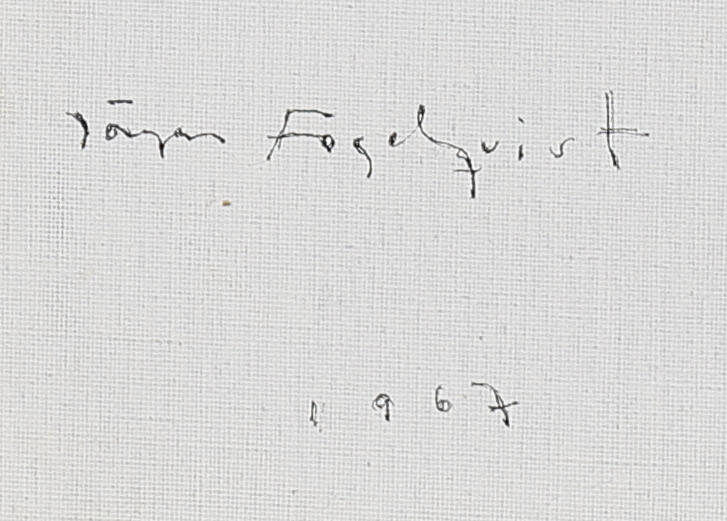 Jörgen Fogelquist
1967